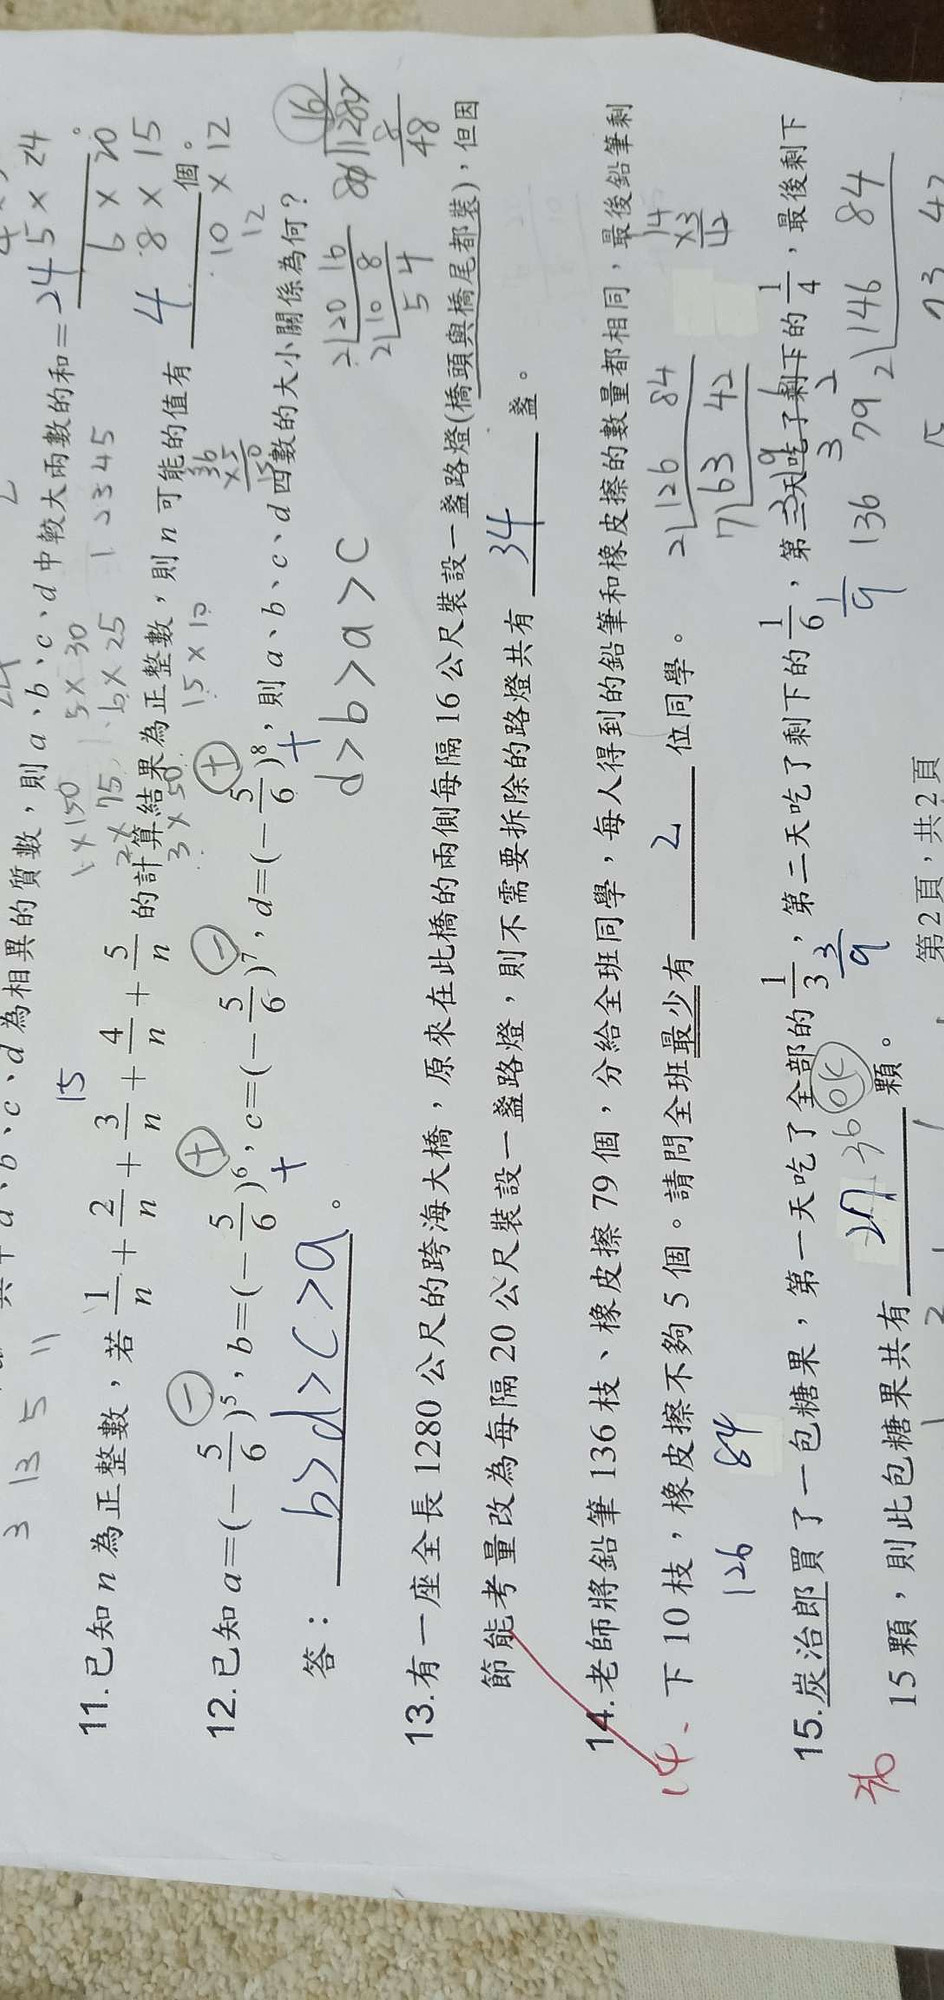 3 13 5 11
共 a、b、c、d 為相異的質數，則 a、b、c、d 中較大兩數的和 = 24 。
11. 已知 n 為正整數，若 1/n + 2/n + 3/n + 4/n + 5/n 的計算結果為正整數，則 n 可能的值有 4 個。
15
1 × 150
2 × 75
3 × 50
5 × 30
6 × 25
15 × 10
1 2 3 4 5
5 × 24
6 × 20
8 × 15
10 × 12
12
36
× 5
12. 已知 a=(−5/6)⁵，b=(−5/6)⁶，c=(−5/6)⁷，d=(−5/6)⁸，則 a、b、c、d 四數的大小關係為何？
− + − +
+ +
答： b>d>c>a 。
d>b>a>c
16
80 1280
8
48
2 20 16
2 10 8
5 4
13. 有一座全長 1280 公尺的跨海大橋，原來在此橋的兩側每隔 16 公尺裝設一盞路燈(橋頭與橋尾都裝)，但因
節能考量改為每隔 20 公尺裝設一盞路燈，則不需要拆除的路燈共有 34 盞。
14. 老師將鉛筆 136 枝、橡皮擦 79 個，分給全班同學，每人得到的鉛筆和橡皮擦的數量都相同，最後鉛筆剩
14
× 3
42
下 10 枝，橡皮擦不夠 5 個。請問全班最少有 2 位同學。
14.
126 84
2 126 84
7 63 42
9
3 2
15. 炭治郎買了一包糖果，第一天吃了全部的 1/3，第二天吃了剩下的 1/6，第三天吃了剩下的 1/4，最後剩下
3/9 1/9
136 79
2 146 84
73 42
15 顆，則此包糖果共有 27 36 ok 顆。
36
第2頁，共2頁